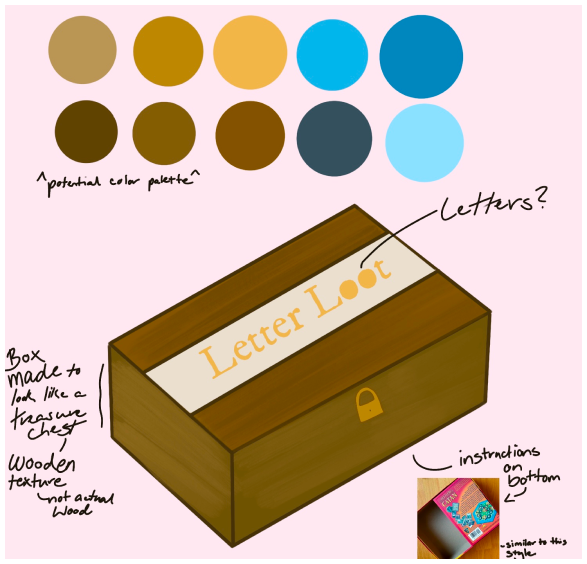 ^potential color palette^
Letters?
Letter Loot
Box
made to
look like a
treasure
chest
Wooden
texture
not actual
wood
instructions
on
bottom
-similar to this
style